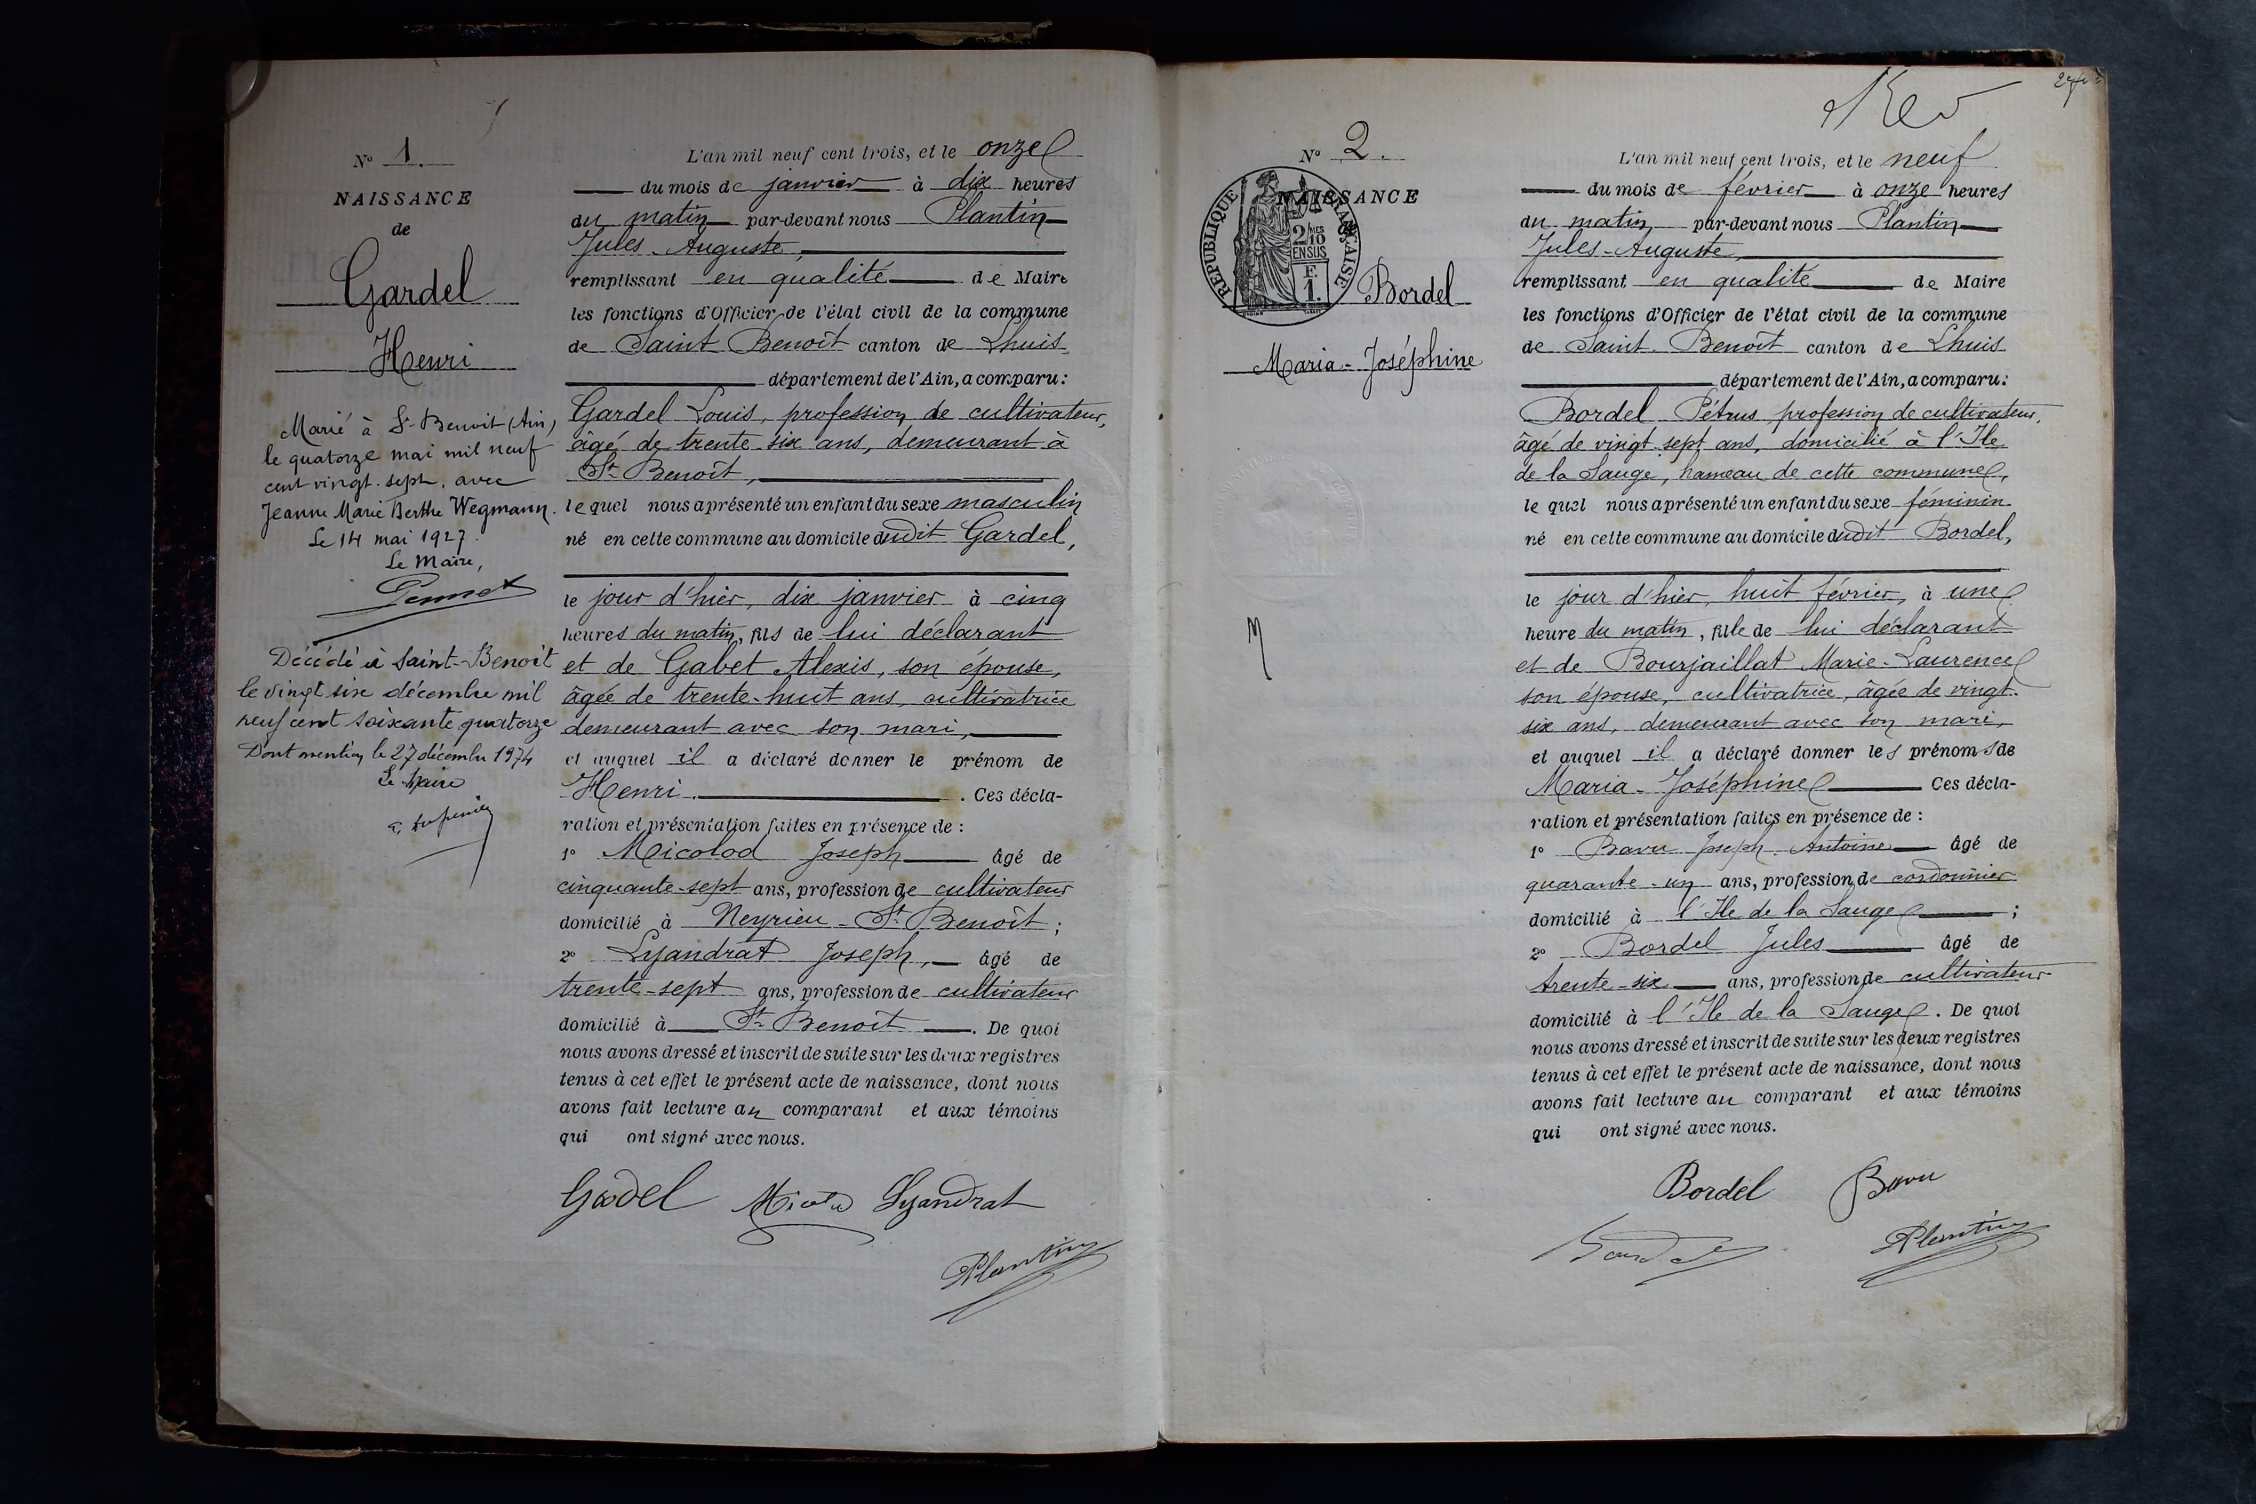 N° 1.
NAISSANCE
de
Gardel
Henri
Marié à St Benoit (Ain)
le quatorze mai mil neuf
cent vingt-sept, avec
Jeanne Marie Berthe Wegmann.
Le 14 mai 1927.
Le Maire,
Décédé à Saint-Benoît
le vingt six décembre mil
neuf cent soixante quatorze
Dont mention le 27 décembre 1974
Le Maire
L'an mil neuf cent trois, et le onze
du mois de janvier à dix heures
du matin par-devant nous Plantin
Jules-Auguste,
remplissant en qualité de Maire
les fonctions d'Officier de l'état civil de la commune
de Saint Benoît canton de Lhuis
département de l'Ain, a comparu:
Gardel Louis, profession de cultivateur,
âgé de trente-six ans, demeurant à
St Benoît,
lequel nous a présenté un enfant du sexe masculin
né en cette commune au domicile dudit Gardel,
le jour d'hier, dix janvier à cinq
heures du matin, fils de lui déclarant
et de Gabet Alexis, son épouse,
âgée de trente-huit ans, cultivatrice
demeurant avec son mari,
et auquel il a déclaré donner le prénom de
Henri. . Ces décla-
ration et présentation faites en présence de :
1° Micolod Joseph âgé de
cinquante-sept ans, profession de cultivateur
domicilié à Neyrieu-St Benoît ;
2° Lyandrat Joseph, âgé de
trente-sept ans, profession de cultivateur
domicilié à St Benoît . De quoi
nous avons dressé et inscrit de suite sur les deux registres
tenus à cet effet le présent acte de naissance, dont nous
avons fait lecture au comparant et aux témoins
qui ont signé avec nous.
Gardel Micolod Lyandrat
Plantin
N° 2.
NAISSANCE
RÉPUBLIQUE FRANÇAISE
2/10 EN SUS
F. 1.
Bordel
Maria-Joséphine
L'an mil neuf cent trois, et le neuf
du mois de février à onze heures
du matin, par-devant nous Plantin
Jules-Auguste,
remplissant en qualité de Maire
les fonctions d'Officier de l'état civil de la commune
de Saint-Benoît canton de Lhuis
département de l'Ain, a comparu:
Bordel Pétrus, profession de cultivateur,
âgé de vingt-sept ans, domicilié à l'Ile
de la Sauge, hameau de cette commune,
lequel nous a présenté un enfant du sexe féminin
né en cette commune au domicile dudit Bordel,
le jour d'hier, huit février, à une
heure du matin, fille de lui déclarant
et de Bourjaillat Marie-Laurence
son épouse, cultivatrice, âgée de vingt-
six ans, demeurant avec son mari,
et auquel il a déclaré donner les prénoms de
Maria-Joséphine Ces décla-
ration et présentation faites en présence de :
1° Bavu Joseph-Antoine âgé de
quarante-un ans, profession de cordonnier
domicilié à l'Ile de la Sauge ;
2° Bordel Jules âgé de
trente-six ans, profession de cultivateur
domicilié à l'Ile de la Sauge . De quoi
nous avons dressé et inscrit de suite sur les deux registres
tenus à cet effet le présent acte de naissance, dont nous
avons fait lecture au comparant et aux témoins
qui ont signé avec nous.
Bordel Bavu
Plantin